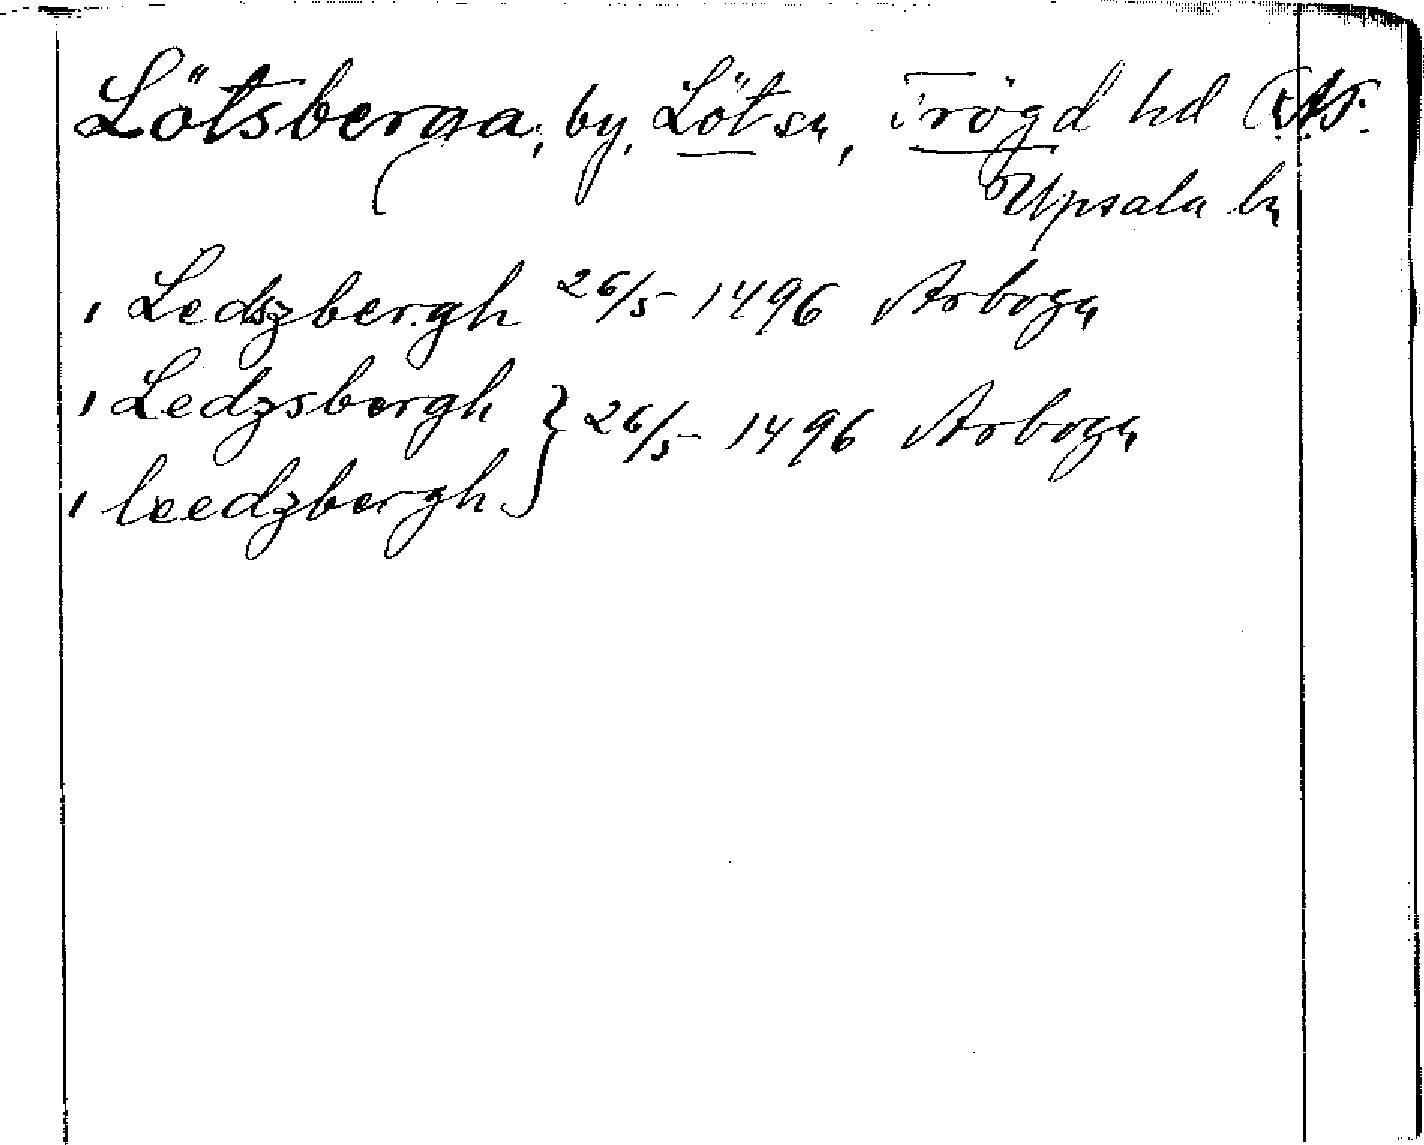 Lötsberga, by, Löt sn, Trögd hd
Upsala ln
ı Ledszbergh 26/5 1496 Arboga
ı Ledzsbergh } 26/5 1496 Arboga
ı leedzbergh